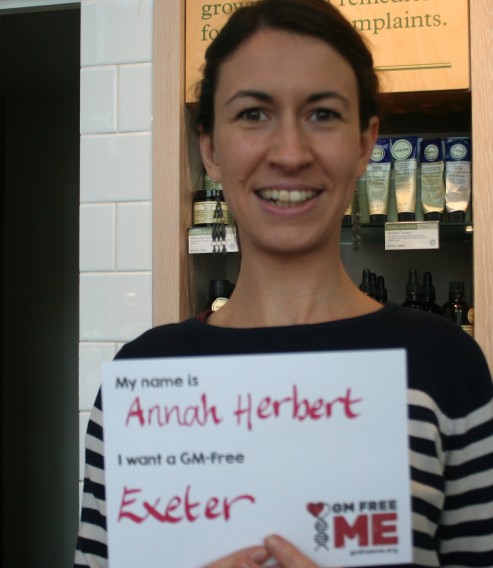 for complaints.
My name is
Annah Herbert
I want a GM-Free
Exeter
GM FREE
ME
gmfreeme.org